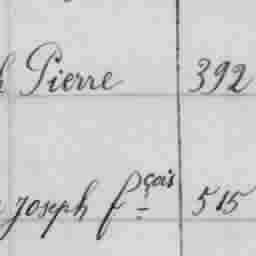 Pierre 392
joseph fçois 515